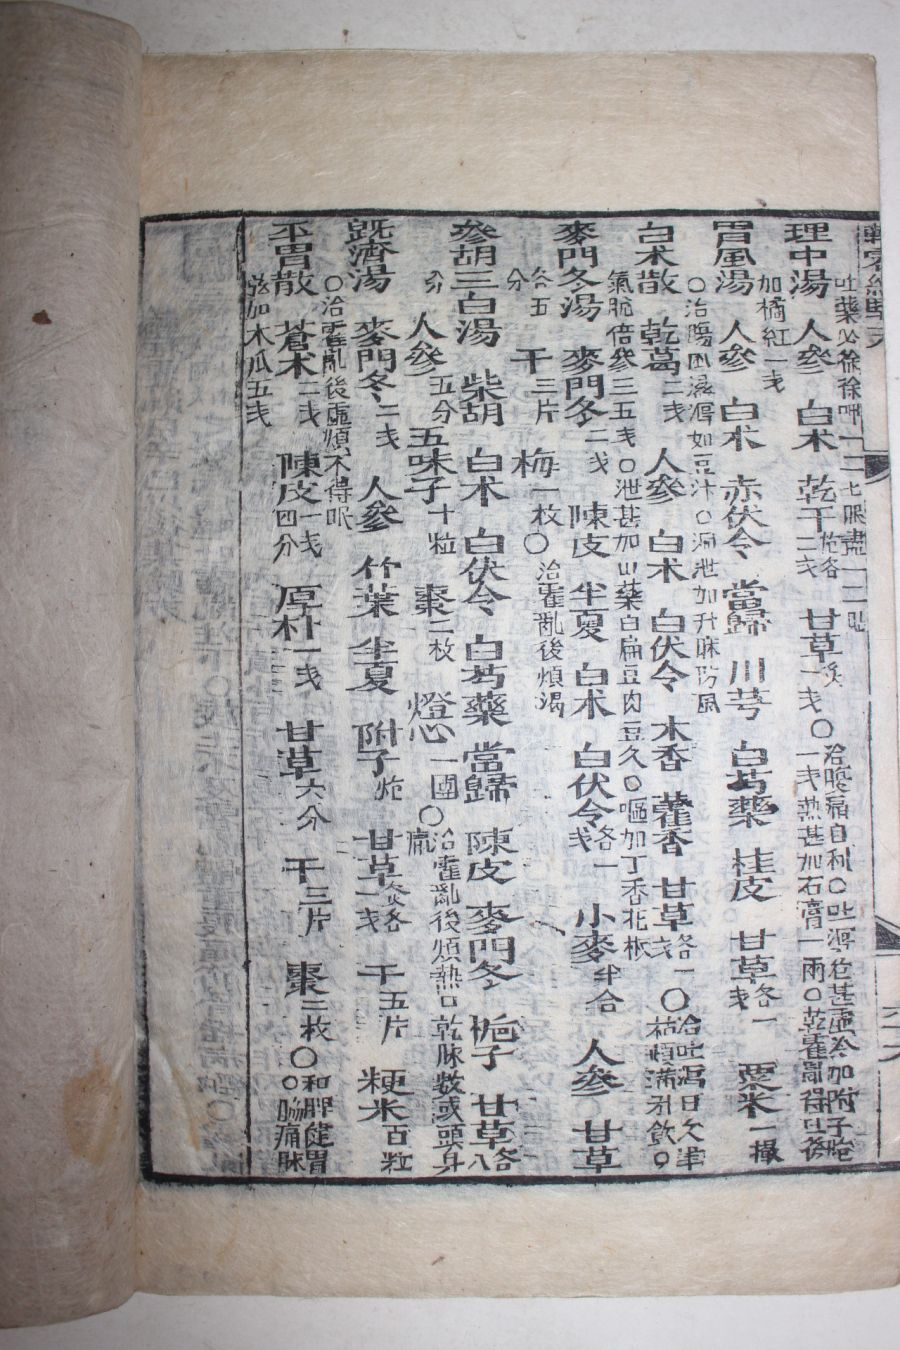 理中湯 人參 白朮 乾干炮各二戔 甘草炙一戔 ○治腹痛自利○吐瀉 甚虛冷加附子炮一戔熱甚加石膏一兩○乾霍亂得吐後
吐藥必徐徐呷一二七眼盡一二貼
加橘紅一戔
胃風湯 人參 白朮 赤伏令 當歸 川芎 白芍藥 桂皮 甘草各一戔 粟米一撮
○治傷風 如豆汁○洞泄加升麻防風
白朮散 乾葛二戔 人參 白朮 白伏令 木香 藿香 甘草各一戔 ○治吐瀉日久津枯煩滿引飲○
氣脫倍參三五戔○泄甚加山藥白扁豆肉豆久○嘔加丁香
麥門冬湯 麥門冬二戔 陳皮 半夏 白朮 白伏令各一戔 小麥半合 人參 甘草
各五分 干三片 梅一枚○治霍亂後煩渴
參胡三白湯 柴胡 白朮 白伏令 白芍藥 當歸 陳皮 麥門冬 梔子 甘草各八
分 人參五分 五味子十粒 棗二枚 燈心一團○治霍亂後煩熱口乾脉數或頭身
旣濟湯 麥門冬二戔 人參 竹葉 半夏 附子炮 甘草炙各一戔 干五片 粳米百粒
○治霍亂後虛煩不得眠
平胃散 蒼朮二戔 陳皮一戔四分 厚朴一戔 甘草六分 干三片 棗二枚○和脾健胃○胸痛脉
弦加木瓜五戔